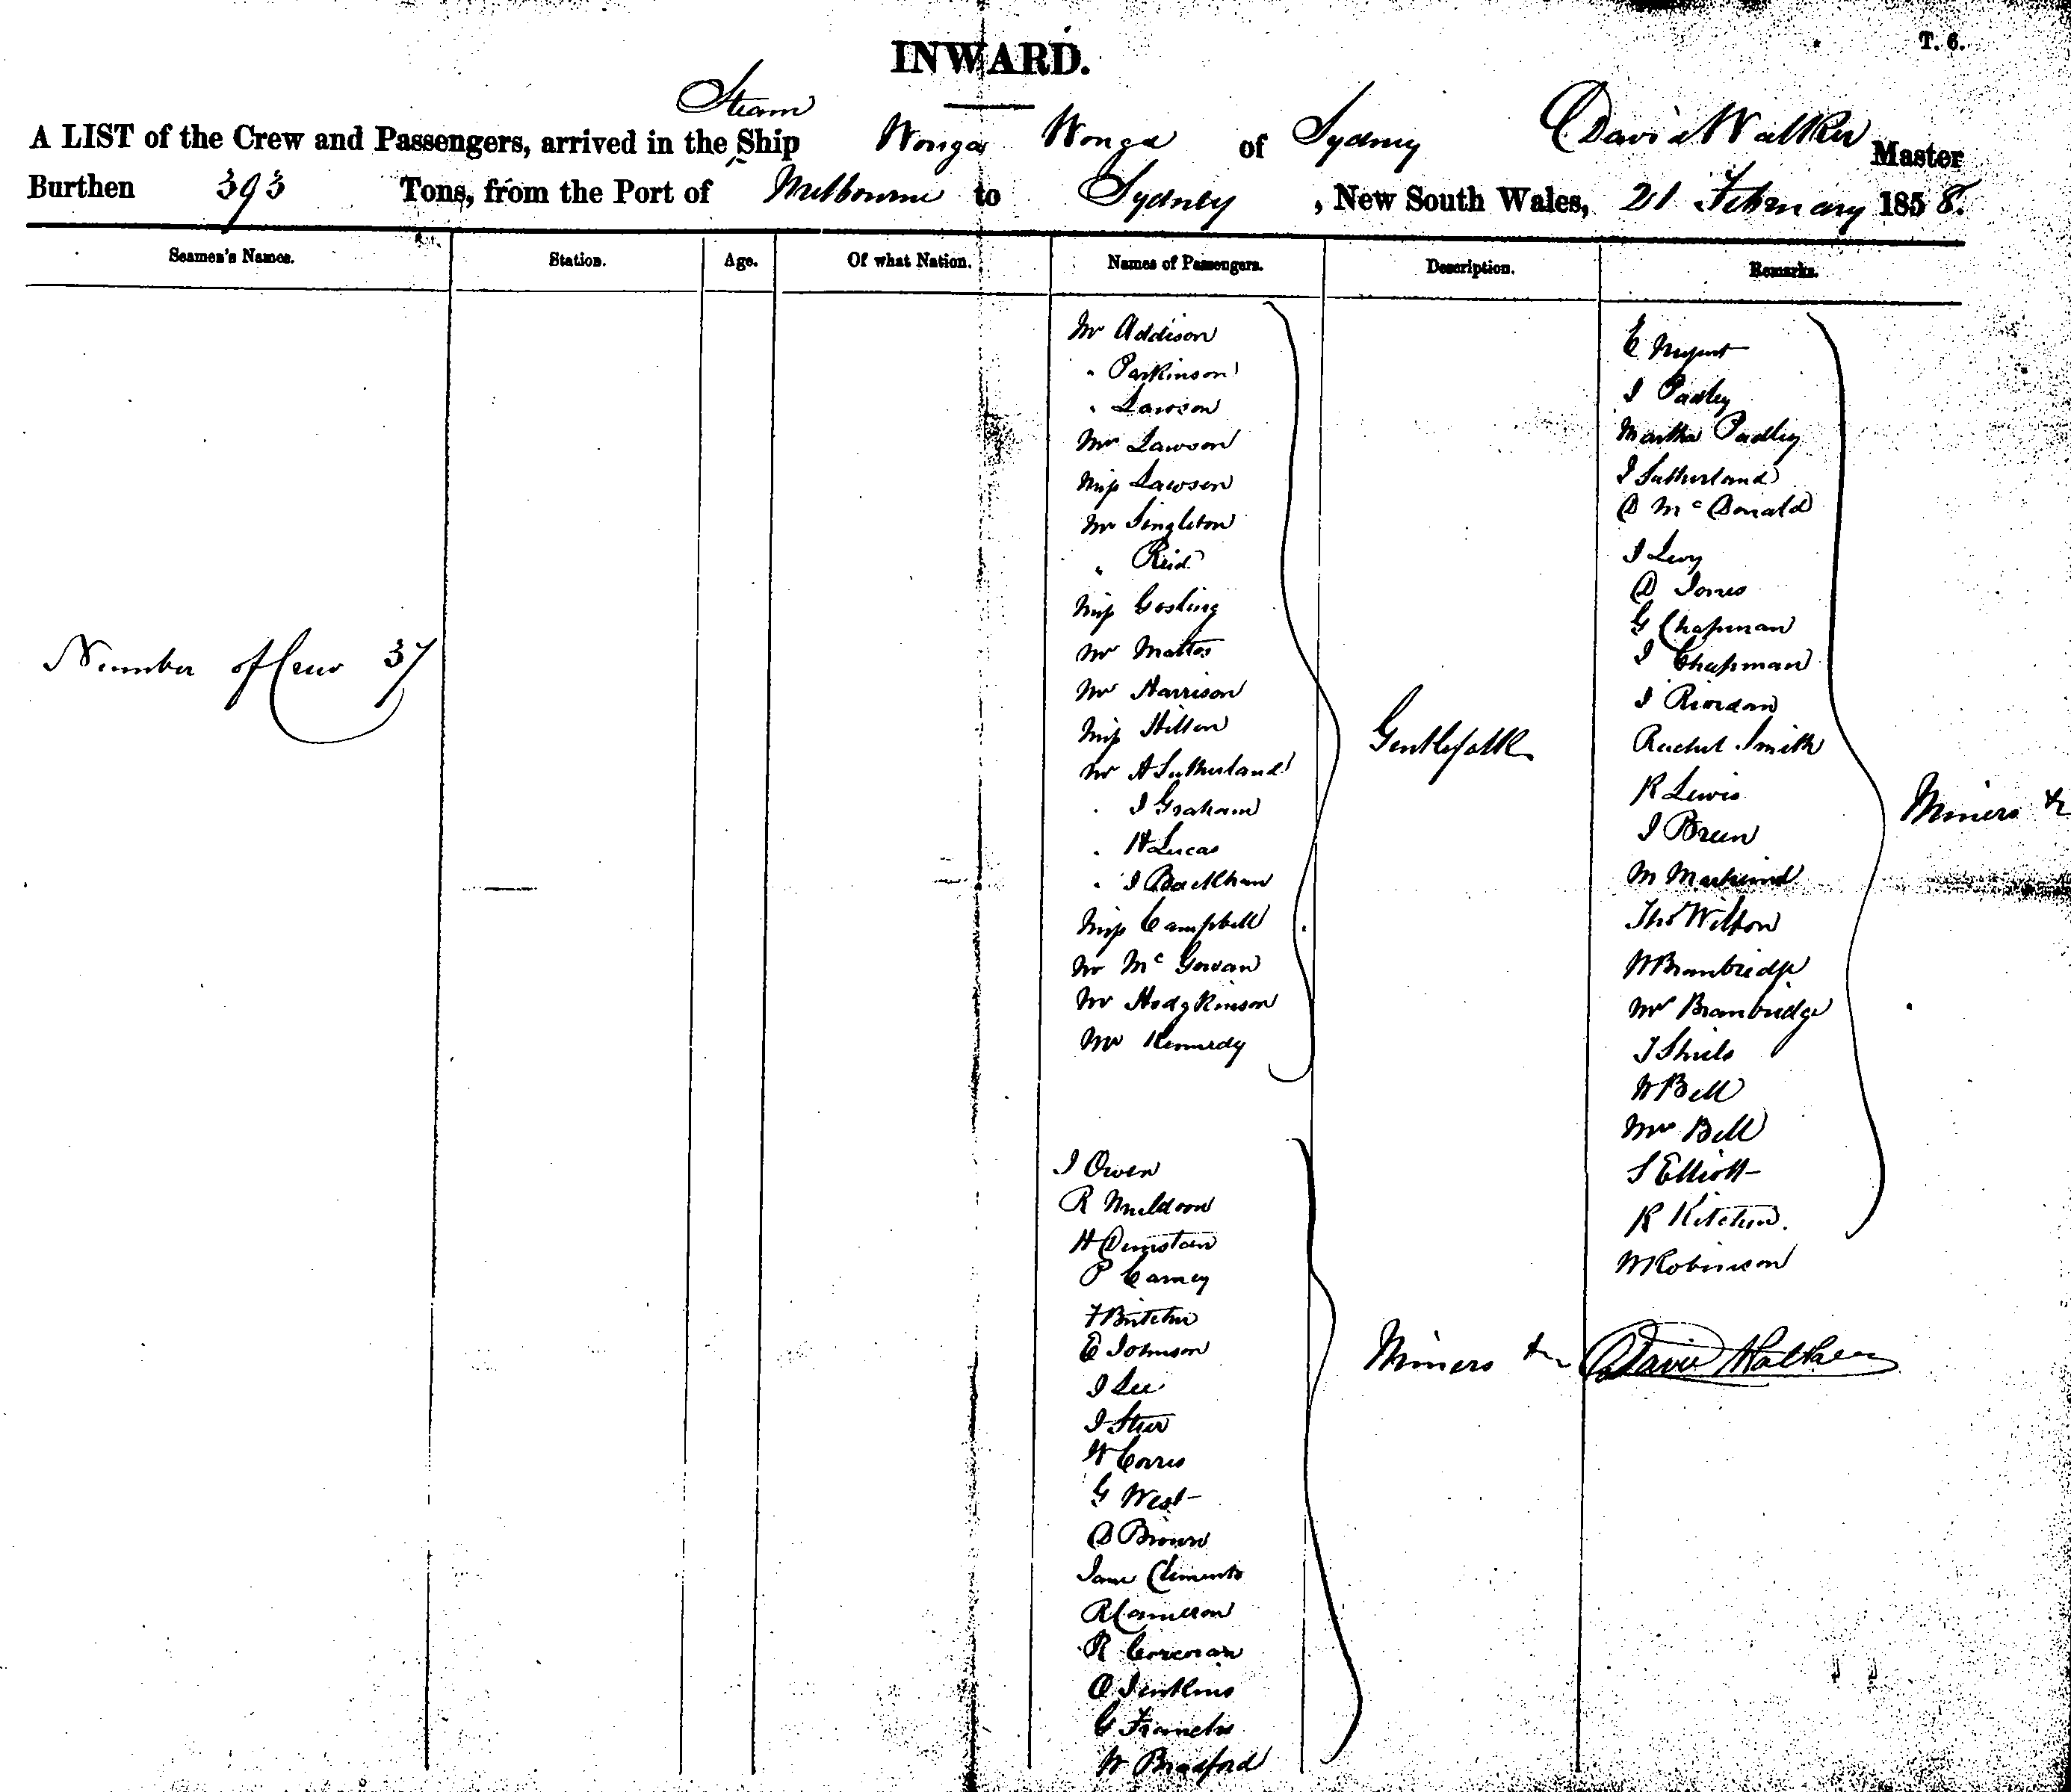 T. 6.
INWARD.
Steam
A LIST of the Crew and Passengers, arrived in the Ship Wonga Wonga of Sydney David Walker Master
Burthen 393 Tons, from the Port of Melbourne to Sydney, New South Wales, 21 February 1858.
Seamen's Names. Station. Age. Of what Nation. Names of Passengers. Description. Remarks.
Number of Crew 37
Mr Addison
" Parkinson
" Lawson
Mrs Lawson
Miss Lawson
Mr Singleton
" Reid
Miss Gosling
Mr Mattos
Mr Harrison
Miss Hilton
Mr A Sutherland
" I Graham
" H Lucas
" I
Miss Campbell
Mr McGowan
Mr Hodgkinson
Mr Kennedy
Gentlefolk
I Owen
R Muldoon
H
P Carney
F Butcher
E Johnson
I Lee
I Steer
W
G West
D Brown
Jane Clements
R Cameron
R Corcoran
O Jenkins
G Francis
W Bradford
Miners &c
E Nugent
I Padley
Martha Padley
I Sutherland
D McDonald
I Levy
D Jones
G Chapman
I Chapman
I Riordan
Rachel Smith
R Lewis
I Breen
M
Thos Wilson
W Brambridge
Mrs Brambridge
J Shiels
W Bell
Mrs Bell
S Elliott
R Kitchen.
W Robinson
Miners &c
David Walker